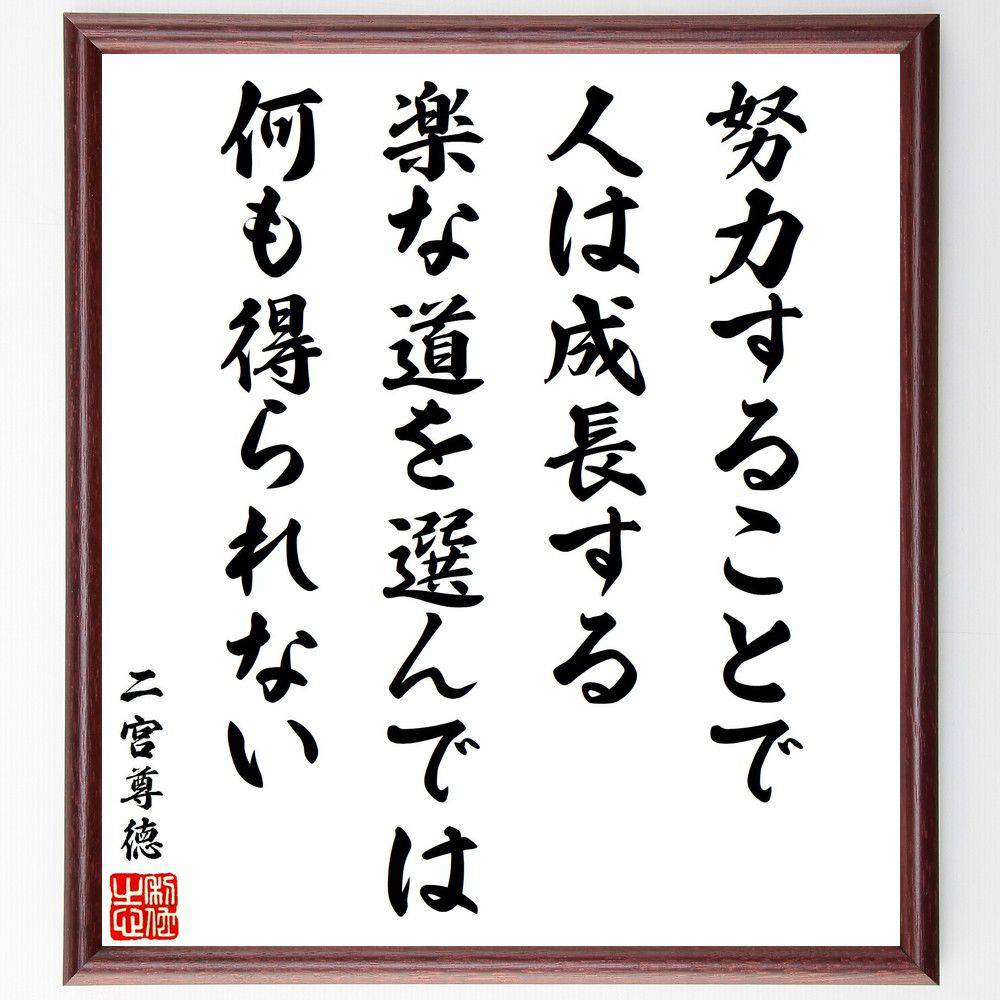 努力することで
人は成長する
楽な道を選んでは
何も得られない
二宮尊徳